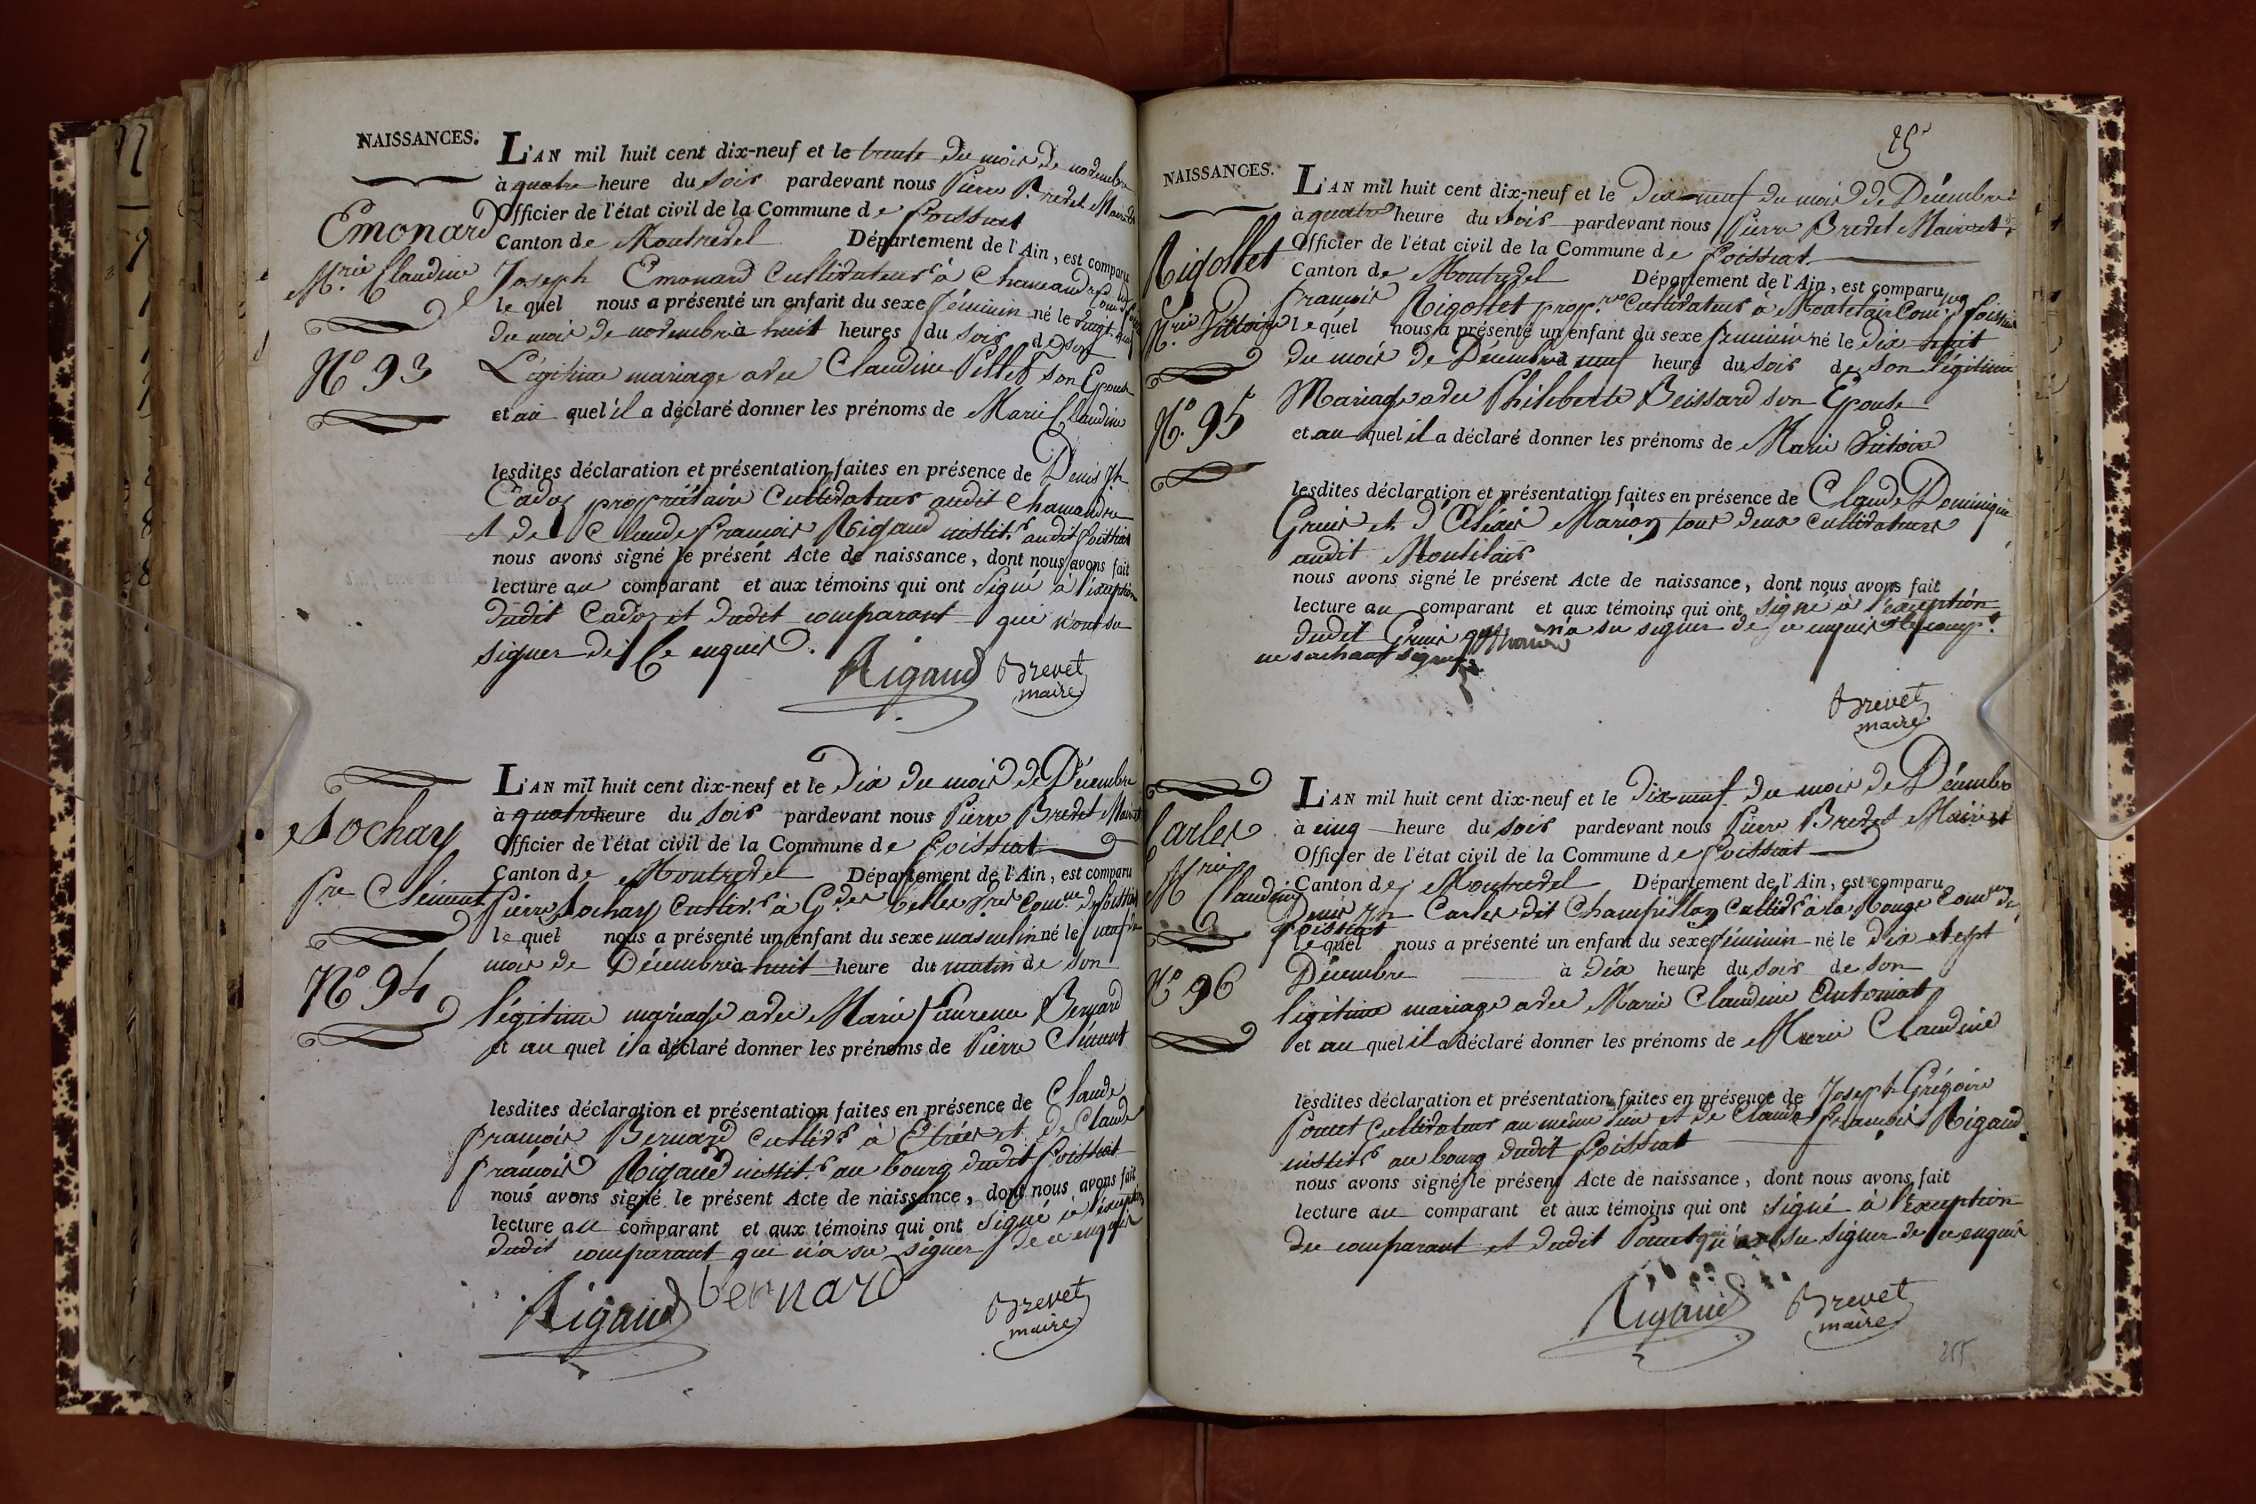 NAISSANCES.
Emonard
Mrie Claudine
N° 93
L'AN mil huit cent dix-neuf et le trente du mois de novembre
à quatre heure du soir pardevant nous Pierre Brevet Maire et
Officier de l'état civil de la Commune de Foissiat
Canton de Montrevel Département de l'Ain, est comparu
Joseph Emonard Cultivateur à Chamandre
le quel nous a présenté un enfant du sexe féminin né le vingt neuf
du mois de novembre à huit heures du soir de son
Légitime mariage avec Claudine Pillet son Epouse
et au quel il a déclaré donner les prénoms de Marie Claudine
lesdites déclaration et présentation faites en présence de Denis Jh
Cadoz propriétaire Cultivateur audit Chamandre
et de Claude François Rigaud instit.r audit Foissiat
nous avons signé le présent Acte de naissance, dont nous avons fait
lecture au comparant et aux témoins qui ont signé à l'exception
dudit Cadoz et dudit comparant qui n'ont su
signer de ce enquis.
Rigaud Brevet
maire
Sochay
Pre Clément
N° 94
L'AN mil huit cent dix-neuf et le Dix du mois de Décembre
à quatre heure du soir pardevant nous Pierre Brevet Maire et
Officier de l'état civil de la Commune de Foissiat
Canton de Montrevel Département de l'Ain, est comparu
Pierre Sochay Cultiv.r à G.des Belles Comne de Foissiat
le quel nous a présenté un enfant du sexe masculin né le neuf du
mois de Décembre à huit heure du matin de son
légitime mariage avec Marie Laurence Bernard
et au quel il a déclaré donner les prénoms de Pierre Clément
lesdites déclaration et présentation faites en présence de Claude
François Bernard Cultiv.r à Etrées et de Claude
François Rigaud instit.r au bourg dudit Foissiat
nous avons signé le présent Acte de naissance, dont nous avons fait
lecture au comparant et aux témoins qui ont signé à l'exception
dudit comparant qui n'a su signer de ce enquis
Rigaud bernard Brevet
maire
25
NAISSANCES.
Rigottet
Mrie Victoire
N° 95
L'AN mil huit cent dix-neuf et le Dix-neuf du mois de Décembre
à quatre heure du soir pardevant nous Pierre Brevet Maire et
Officier de l'état civil de la Commune de Foissiat
Canton de Montrevel Département de l'Ain, est comparu
François Rigottet prop.re Cultivateur à Montelair Comne de Foissiat
le quel nous a présenté un enfant du sexe féminin né le Dix huit
du mois de Décembre à neuf heure du soir de son légitime
Mariage avec Philiberte Beissard son Epouse
et au quel il a déclaré donner les prénoms de Marie Victoire
lesdites déclaration et présentation faites en présence de Claude Dominique
et d' Marion tous deux cultivateurs
audit
nous avons signé le présent Acte de naissance, dont nous avons fait
lecture au comparant et aux témoins qui ont signé à l'exception
dudit n'a su signer de ce enquis et le comp.t
ne sachant signer
Brevet
maire
Carler
Mrie Claudine
N° 96
L'AN mil huit cent dix-neuf et le Dix-neuf du mois de Décembre
à cinq heure du soir pardevant nous Pierre Brevet Maire et
Officier de l'état civil de la Commune de Foissiat
Canton de Montrevel Département de l'Ain, est comparu
Denis Jh Carler dit Champillon Cultiv.r à la Rouge Comne de
Foissiat
le quel nous a présenté un enfant du sexe féminin né le Dix sept
Décembre à Dix heure du soir de son
légitime mariage avec Marie Claudine Automat
et au quel il a déclaré donner les prénoms de Marie Claudine
lesdites déclaration et présentation faites en présence de Joseph Grégoire
Poncet Cultivateur au même lieu et de Claude François Rigaud
instit.r au bourg dudit Foissiat
nous avons signé le présent Acte de naissance, dont nous avons fait
lecture au comparant et aux témoins qui ont signé à l'exception
du comparant et dudit Poncet qui su signer de ce enquis
Rigaud Brevet
maire
255